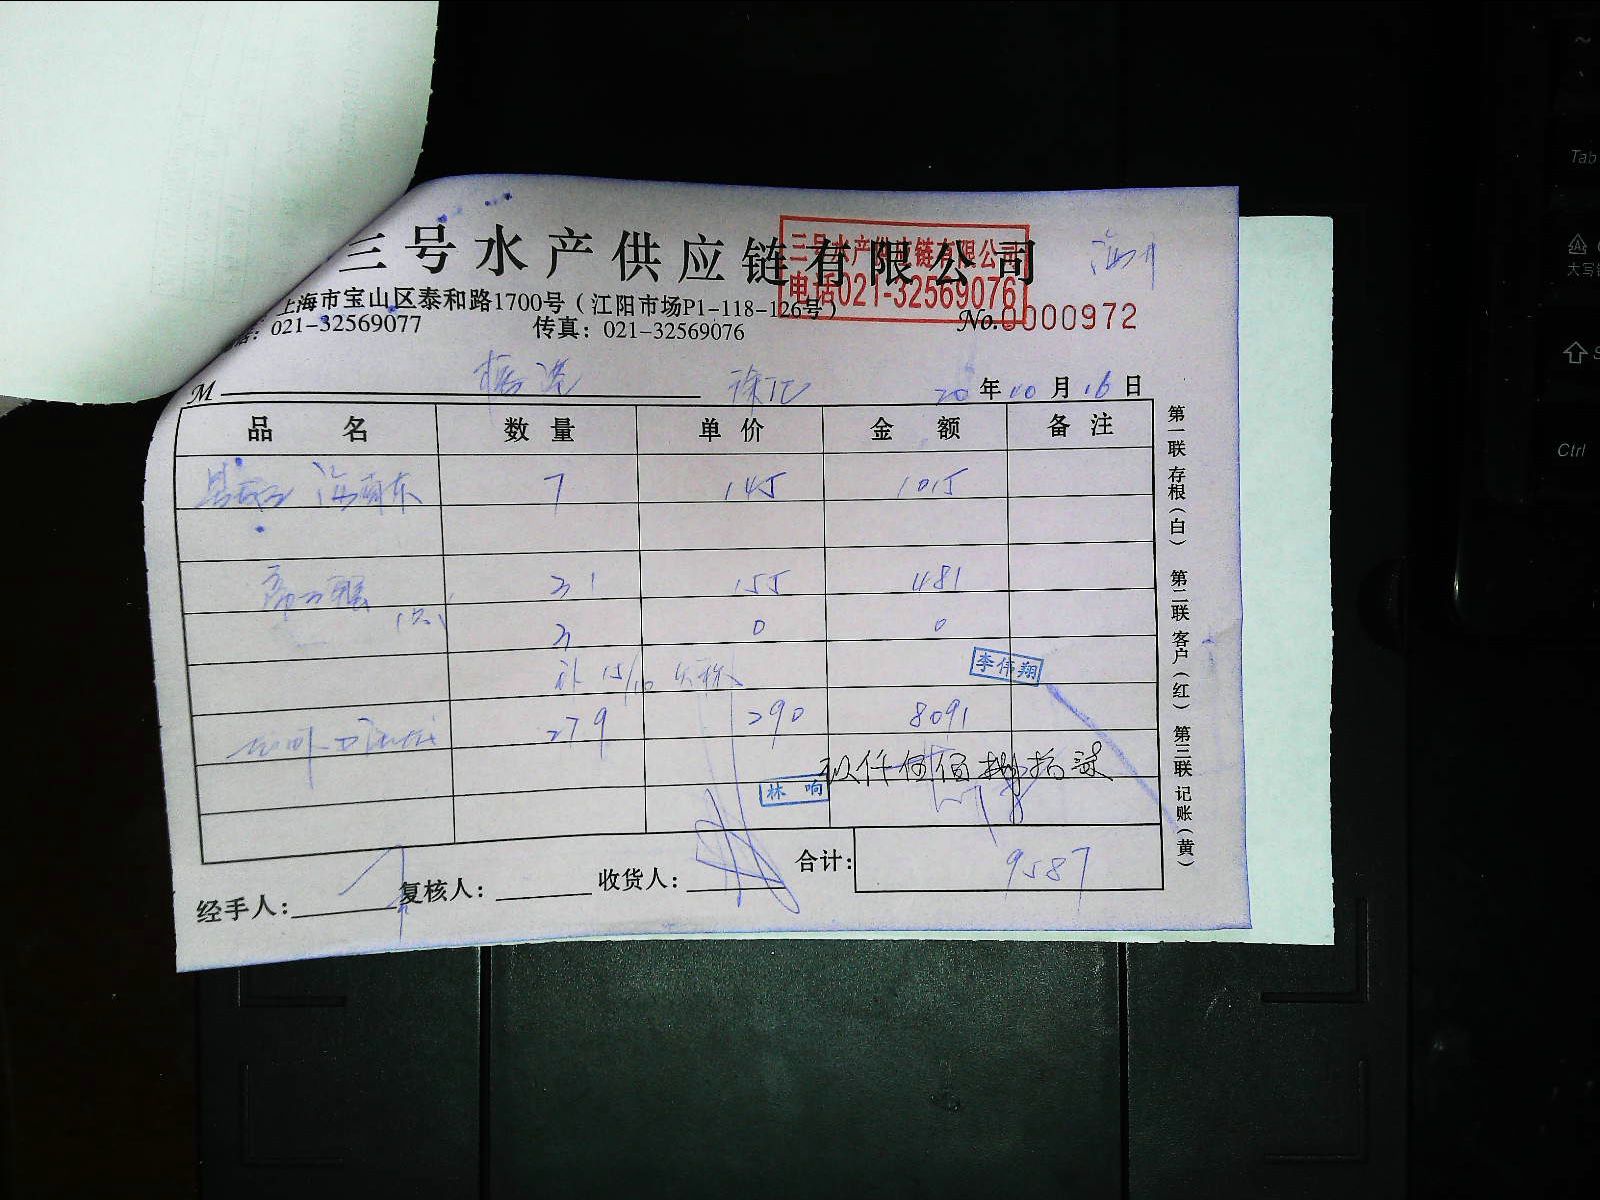 三号水产供应链有限公司
三号水产供应链有限公司
电话021-32569076
上海市宝山区泰和路1700号(江阳市场P1-118-126号)
话:021-32569077 传真:021-32569076
No.0000972
M 20年10月16日
品名 数量 单价 金额 备注
7 145 1015
31 155 481
3 0 0
补 15/10
李伟翔
27.9 290 8091
林响
合计: 9587
经手人: 复核人: 收货人:
第一联 存根(白) 第二联 客户(红) 第三联 记账(黄)
Tab
大写
Ctrl